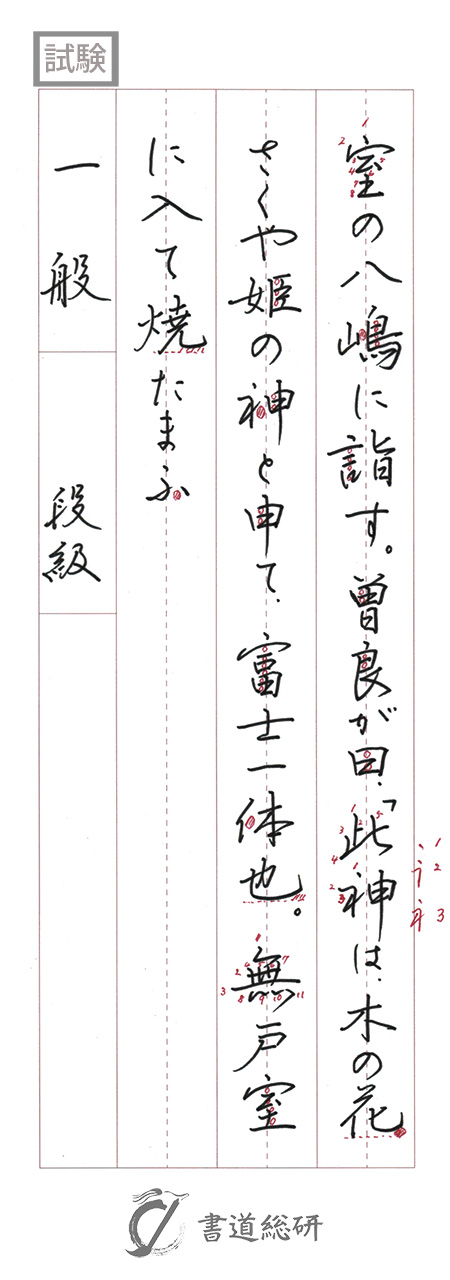 試験
室の八嶋に詣す。曽良が曰、「此神は、木の花
さくや姫の神と申て、富士一体也。無戸室
に入て焼たまふ
一般
段級
書道総研